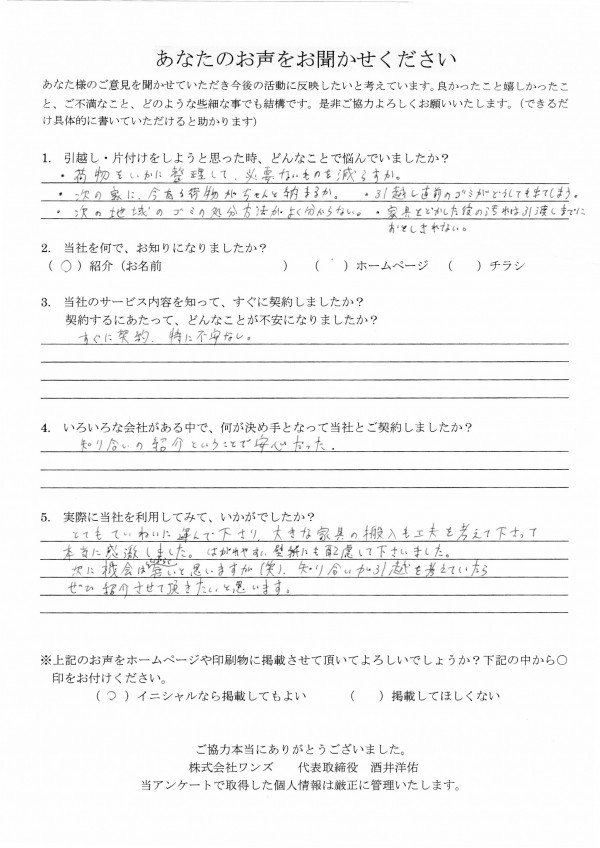 あなたのお声をお聞かせください
あなた様のご意見を聞かせていただき今後の活動に反映したいと考えています。良かったこと嬉しかったこ
と、ご不満なこと、どのような些細な事でも結構です。是非ご協力よろしくお願いいたします。（できるだ
け具体的に書いていただけると助かります）
1. 引越し・片付けをしようと思った時、どんなことで悩んでいましたか？
・荷物をいかに整理して、必要ないものを減らすか。
・次の家に、今ある荷物がちゃんと納まるか。 ・引越し直前のゴミがどうしても出てしまう。
・次の地域のゴミの処分方法がよく分からない。 ・家具をどかした後の汚れは引渡しまでに
おとしきれない。
2. 当社を何で、お知りになりましたか？
（ ○ ）紹介（お名前 ） （ ）ホームページ （ ）チラシ
3. 当社のサービス内容を知って、すぐに契約しましたか？
契約するにあたって、どんなことが不安になりましたか？
すぐに契約、特に不安なし。
4. いろいろな会社がある中で、何が決め手となって当社とご契約しましたか？
知り合いの紹介ということで安心だった.
5. 実際に当社を利用してみて、いかがでしたか？
とてもていねいに運んで下さり、大きな家具の搬入も工夫を考えて下さって
本当に感激しました。はがれやすい壁紙にも配慮して下さいました。
次に機会は無いと思いますが(笑)、知り合いが引越を考えていたら
ぜひ紹介させて頂きたいと思います。
※上記のお声をホームページや印刷物に掲載させて頂いてよろしいでしょうか？下記の中から○
印をお付けください。
（ ○ ）イニシャルなら掲載してもよい （ ）掲載してほしくない
ご協力本当にありがとうございました。
株式会社ワンズ 代表取締役 酒井洋佑
当アンケートで取得した個人情報は厳正に管理いたします。